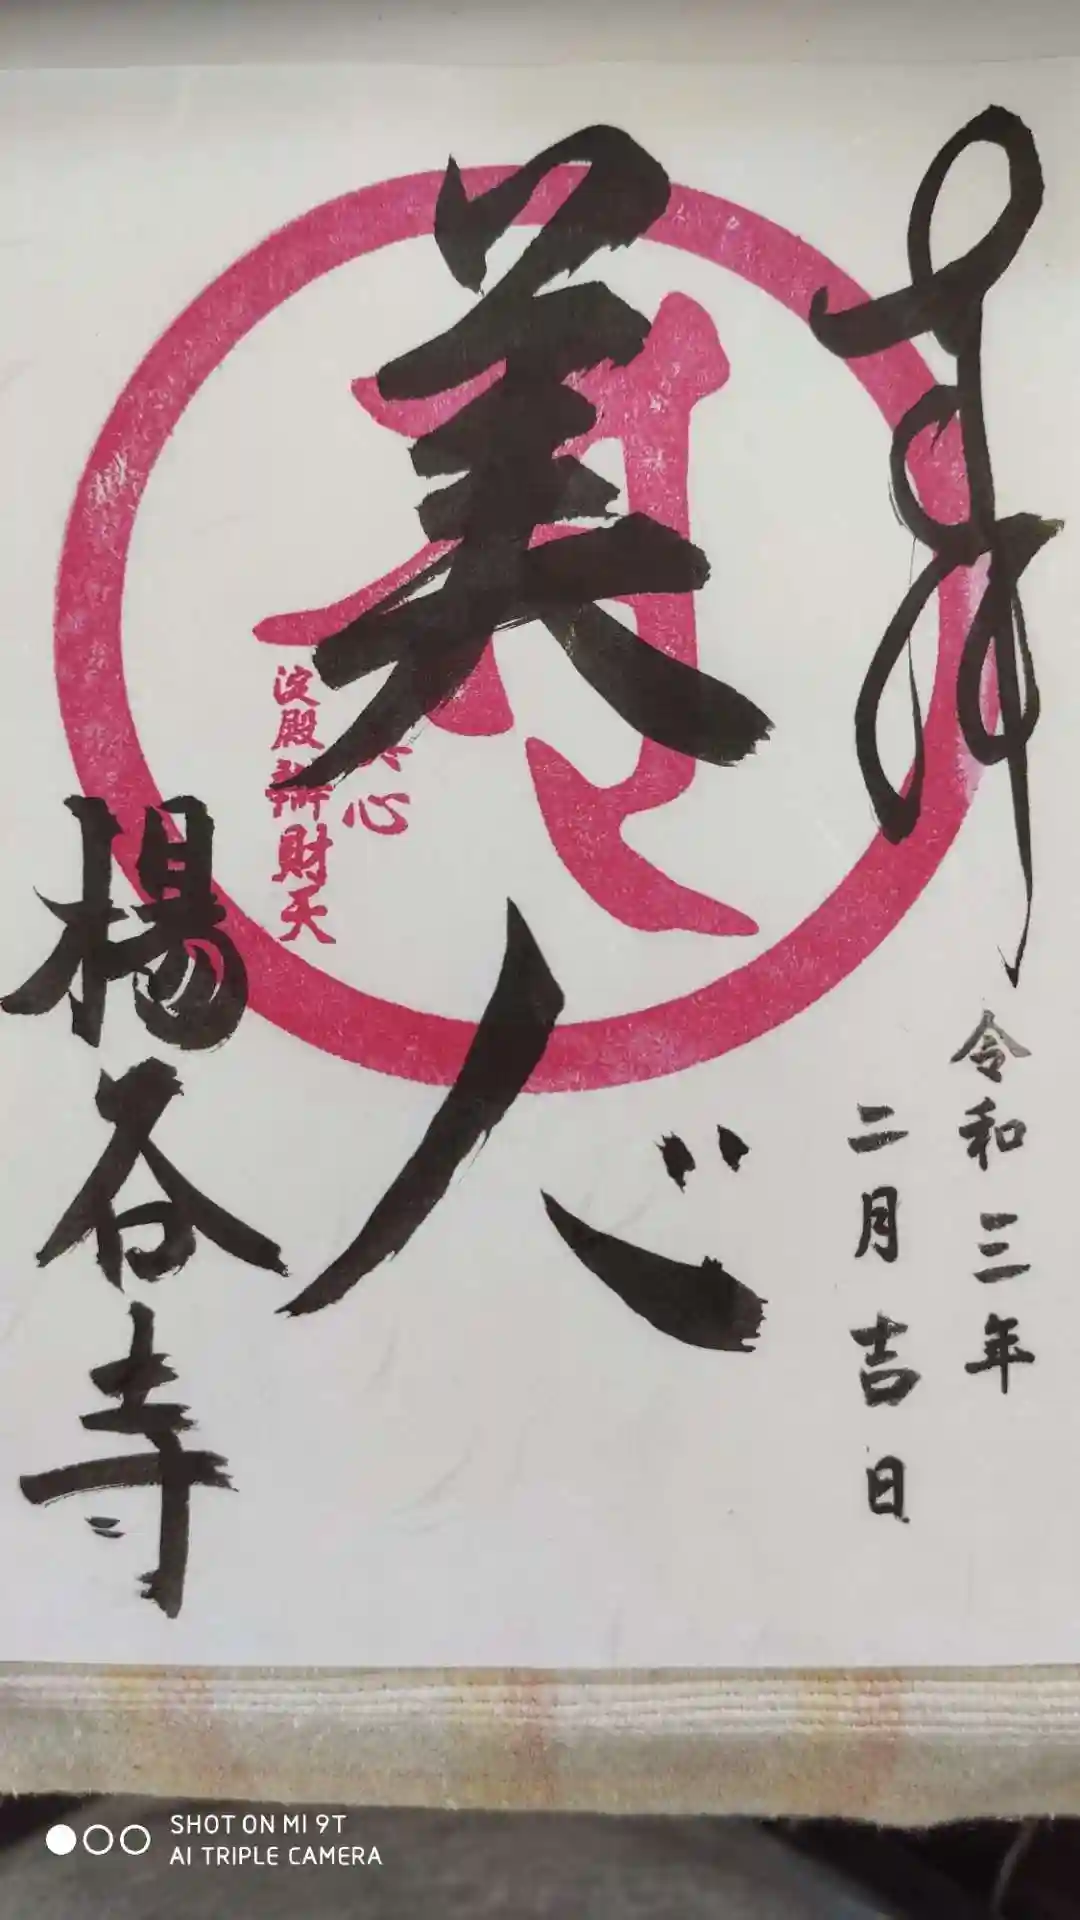 奉拝
令和三年
二月吉日
美心
美心
淀殿辨財天
楊谷寺
SHOT ON MI 9T
AI TRIPLE CAMERA